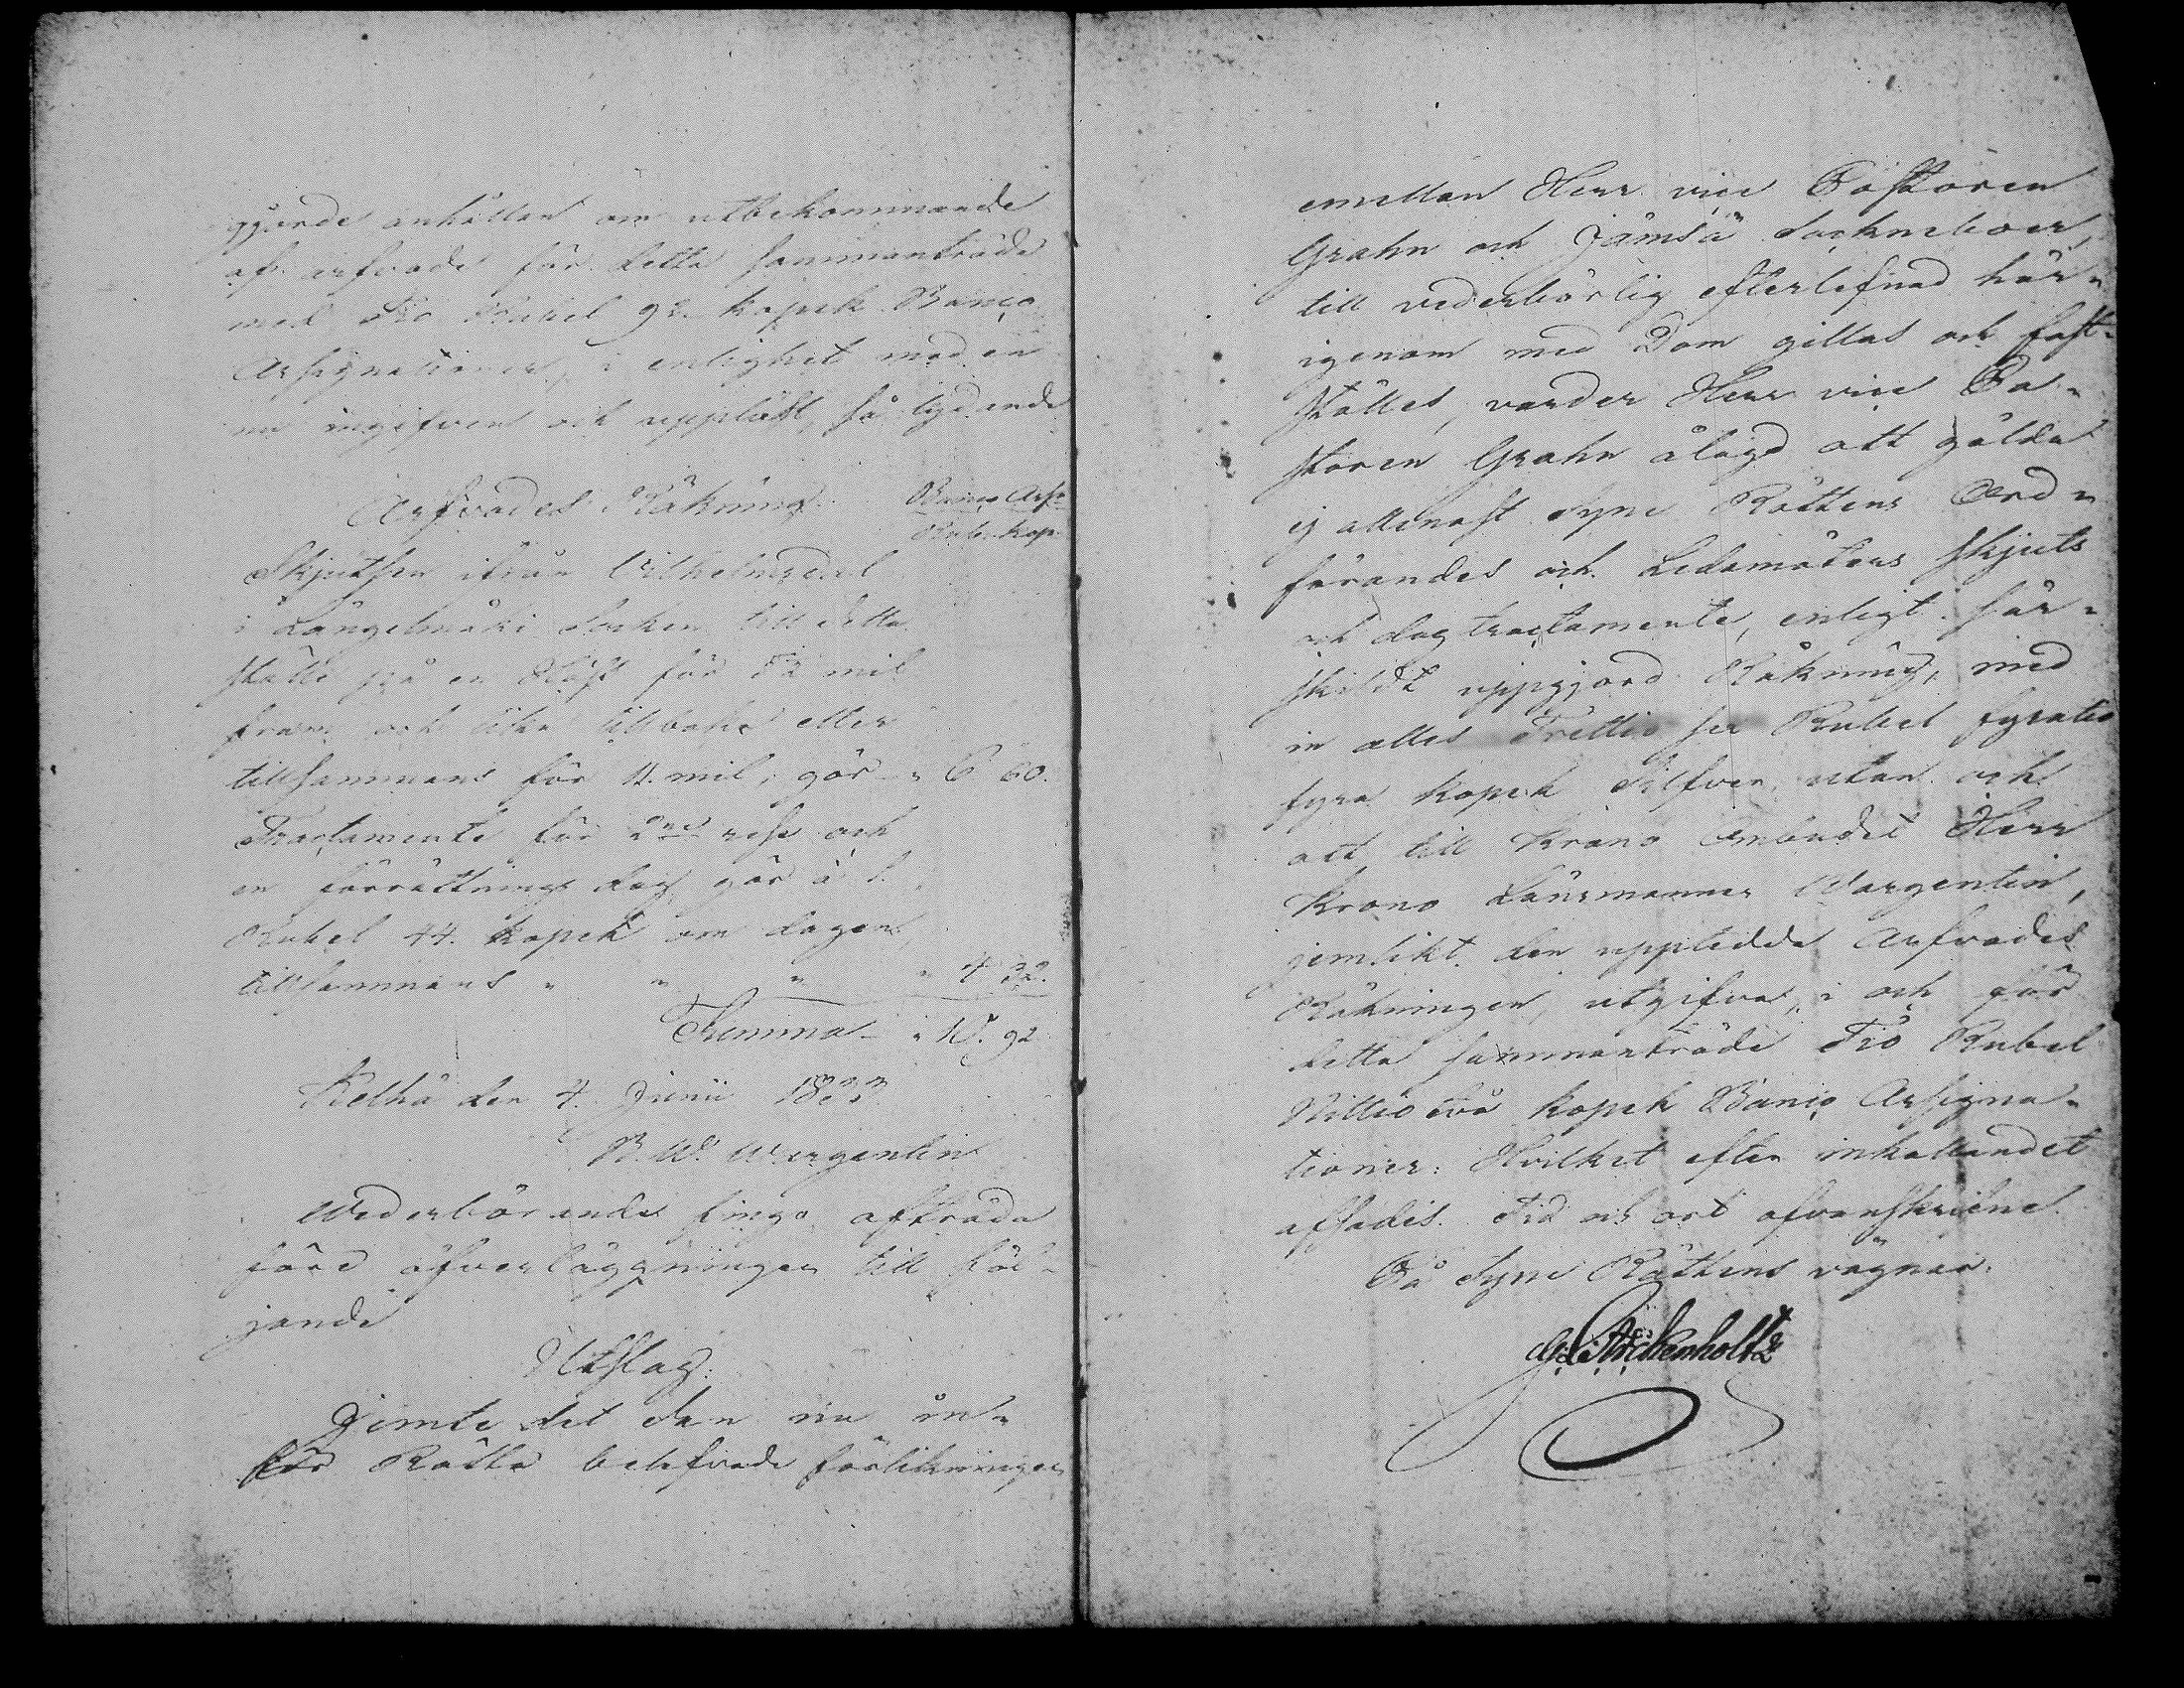 gjorde anhållan om utbekommande
af arfvode för detta sammanträde
med Tio Rubel 92. kopek Banco
Assignationer, i enlighet med en
nu ingifven och uppläst, så lydande
Arfvodes Räkning. Banco Assr
Rub. kop.
Skjutsen ifrån Vilhelmsdal
i Längelmäki Socken till detta
ställe på en Häst för 5½ mil
fram och lika tillbaka eller
tillsammans för 11. mil, gör " 6 60.
Tractamente för 2ne rese och
en förrättnings dag, gör à 1.
Rubel 44. kopek om dagen,
tillsammans " " " " 4 32.
Summa " 10. 92
Kelhä den 4. Junii 1833
B. W. Wargentin
Wederbörande fingo afträda
före öfverläggningen till föl-
jande
Utslag:
Jemte det den nu in-
för Rätta beslefvade förlikningen
emellan Herr vice Pastoren
Grahn och Jämsä Sockneboer
till vederbörlig efterlefnad här-
igenom med Dom gillas och fast-
ställes, varder Herr vice Pa-
storen Grahn ålagd att gälda
ej allenast Syne Rättens Ord-
förandes och Ledamöters skjuts
och dag tractamente, enligt sär-
skildt uppgjord Räkning, med
in alles Trettio sex Rubel fyratio
fyra kopek Silfver, utan och
att till Krono Ombudet Herr
Krono Länsmannen Wargentin,
jemlikt den upptedde Arfvodes
Räkningen, utgifva, i och för
detta sammanträde Tio Rubel
Nittio två kopek Banco Assigna-
tioner. Hvilket efter inkallandet
afsades. Tid och ort ofvanskrifne.
På Syne Rättens vägnar:
G. L. Stichenholtz